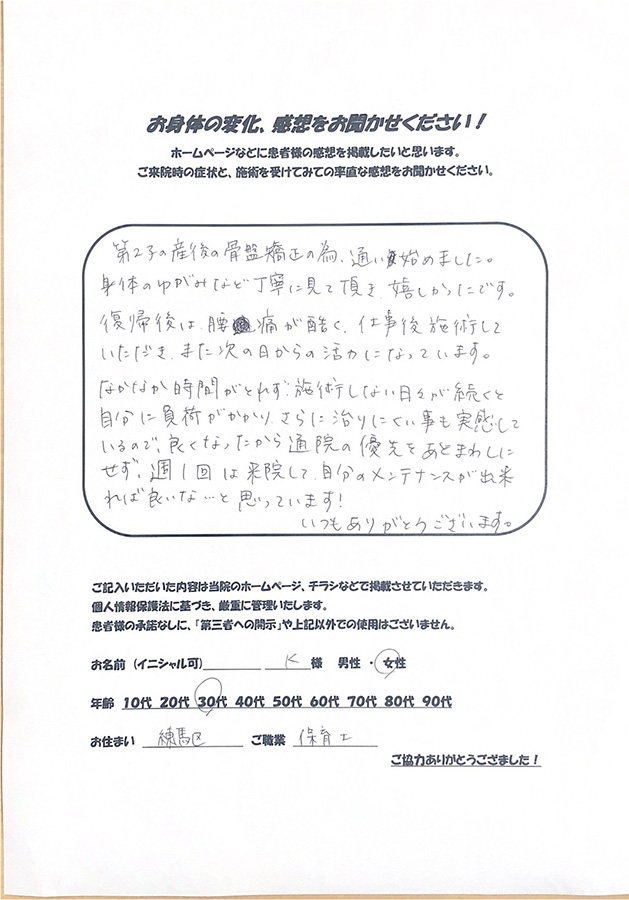 お身体の変化、感想をお聞かせください!
ホームページなどに患者様の感想を掲載したいと思います。
ご来院時の症状と、施術を受けてみての率直な感想をお聞かせください。
第2子の産後の骨盤矯正の為、通い始めました。
身体のゆがみなど丁寧に見て頂き、嬉しかったです。
復帰後は、腰痛が酷く、仕事後施術して
いただき、また次の日からの活力になっています。
なかなか時間がとれず、施術しない日々が続くと
自分に負荷がかかり、さらに治りにくい事も実感して
いるので、良くなったから通院の優先をあとまわしに
せず、週1回は来院して、自分のメンテナンスが出来
れば良いな…と思っています!
いつもありがとうございます。
ご記入いただいた内容は当院のホームページ、チラシなどで掲載させていただきます。
個人情報保護法に基づき、厳重に管理いたします。
患者様の承諾なしに、「第三者への開示」や上記以外での使用はございません。
お名前(イニシャル可) K 様 男性・女性
年齢 10代 20代 30代 40代 50代 60代 70代 80代 90代
お住まい 練馬区 ご職業 保育士
ご協力ありがとうござました!